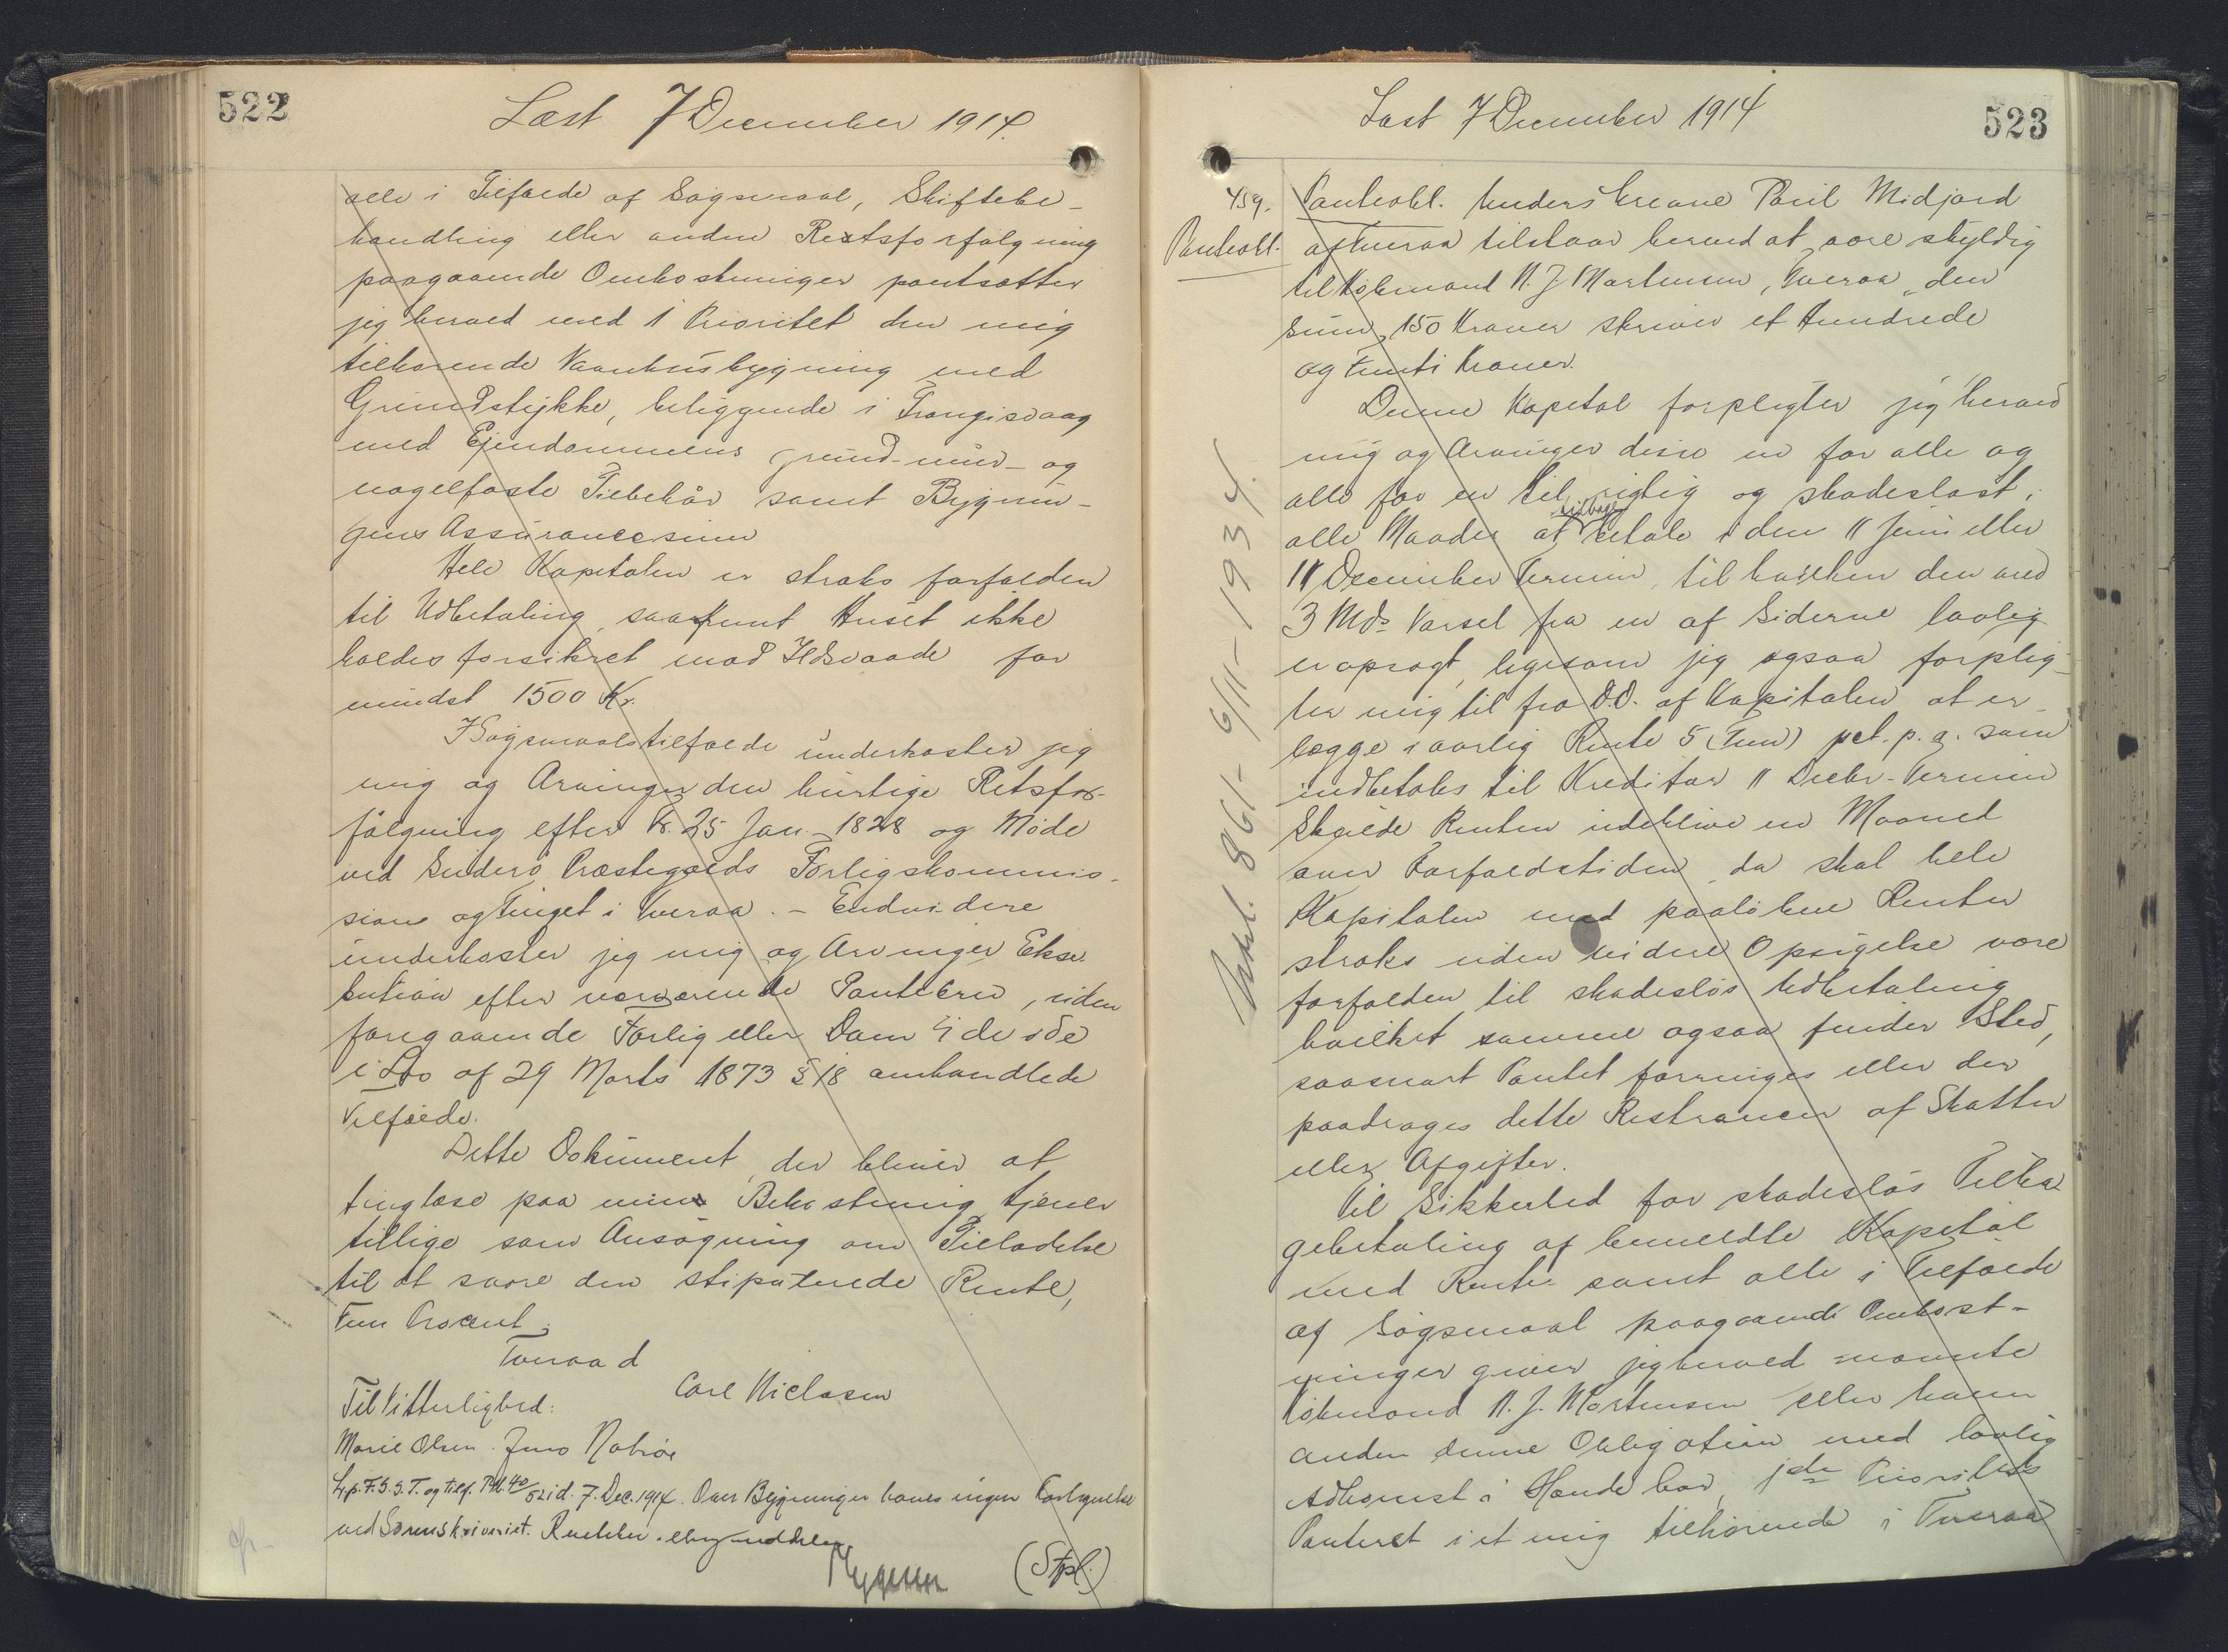 522
Læst 7 December 1914.
alle i Tilfælde af Søgsmaal, Skiftebe-
handling eller anden Retsforfølgning
paagaaende Omkostninger pantsætter
jeg herved med 1 Prioritet den mig
tilhørende Vaanhusbygning med
Grundstykke, beliggende i Trangisvaag
med Ejendommens grund- mur- og
nagelfaste Tilbehør samt Bygnin-
gens Assurancesum
Hele Kapitalen er straks forfalden
til Udbetaling, saafremt Huset ikke
holdes forsikret mod Ildsvaade for
mindst 1500 Kr.
I Søgsmaalstilfælde underkaster jeg
mig og Arvinger den hurtige Retsfor-
følgning efter Fr. 25 Jan. 1828 og Møde
ved Suderø Præstegælds Forligskommis-
sion og Tinget i Tveraa. - Endvidere
underkaster jeg mig og Arvinger Ekse-
kution efter nærværende Pantebrev, uden
foregaaende Forlig eller Dom i de i de
i Lov af 29 Marts 1873 § 18 omhandlede
Tilfælde.
Dette Dokument, der bliver at
tinglæse paa min Bekostning tjener
tillige som Ansøgning om Tilladelse
til at svare den stipulerede Rente,
Fem Procent.
Tveraa d
Carl Nielasen
Til Vitterlighed:
Marie Olsen. Jens Nolsøe
Lp. F. S. S. T. og tilf. Ptbl. 40/521 d. 7. Dec. 1914. Over Bygninger haves ingen Forhynelse
ved Sorenskriveriet.
(Stpl.)
Læst 7 December 1914
523
459.
Panteobl.
Panteobl. Underskrevne Poul Midjord
af Tveraa tilstaar herved at være skyldig
til Købmand N. J. Mortensen, Tveraa, den
Sum, 150 Kroner skriver et Hundrede
og Femti Kroner.
Denne Kapital forpligter jeg herved
mig og Arvinger disse en for alle og
alle for en til rigtig og skadesløst i
alle Maader at tilbage betale i den 11 Juni eller
11 December Termin, til hvilken den med
3 Mds Varsel fra en af Siderne lovlig
er opsagt, ligesom jeg ogsaa forplig-
ter mig til fra D.D. af Kapitalen at er-
lægge i aarlig Rente 5 (Fem) pct. p. a. som
indbetales til Kreditor 11 Decbr. Termin
Skulde Renten udeblive en Maaned
over Forfaldstiden, da skal hele
Kapitalen med paaløbne Renter
straks uden videre Opsigelse være
forfalden til skadesløs Udbetaling
hvilket samme ogsaa finder Sted,
saasnart Pantet forringes eller der
paadrages dette Restrancer af Skatter
eller Afgifter.
Til Sikkerhed for skadesløs Tilba-
gebetaling af bemeldte Kapital
med Renter samt alle i Tilfælde
af Søgsmaal paagaaende Omkost-
ninger giver jeg herved nævnte
Købmand N. J. Mortensen eller hvem
anden denne Obligation med lovlig
Adkomst i Hænde har, 1ste Prioritets
Panteret i et mig tilhørende i Tveraa
Udsl. 861- 6/11-1934.